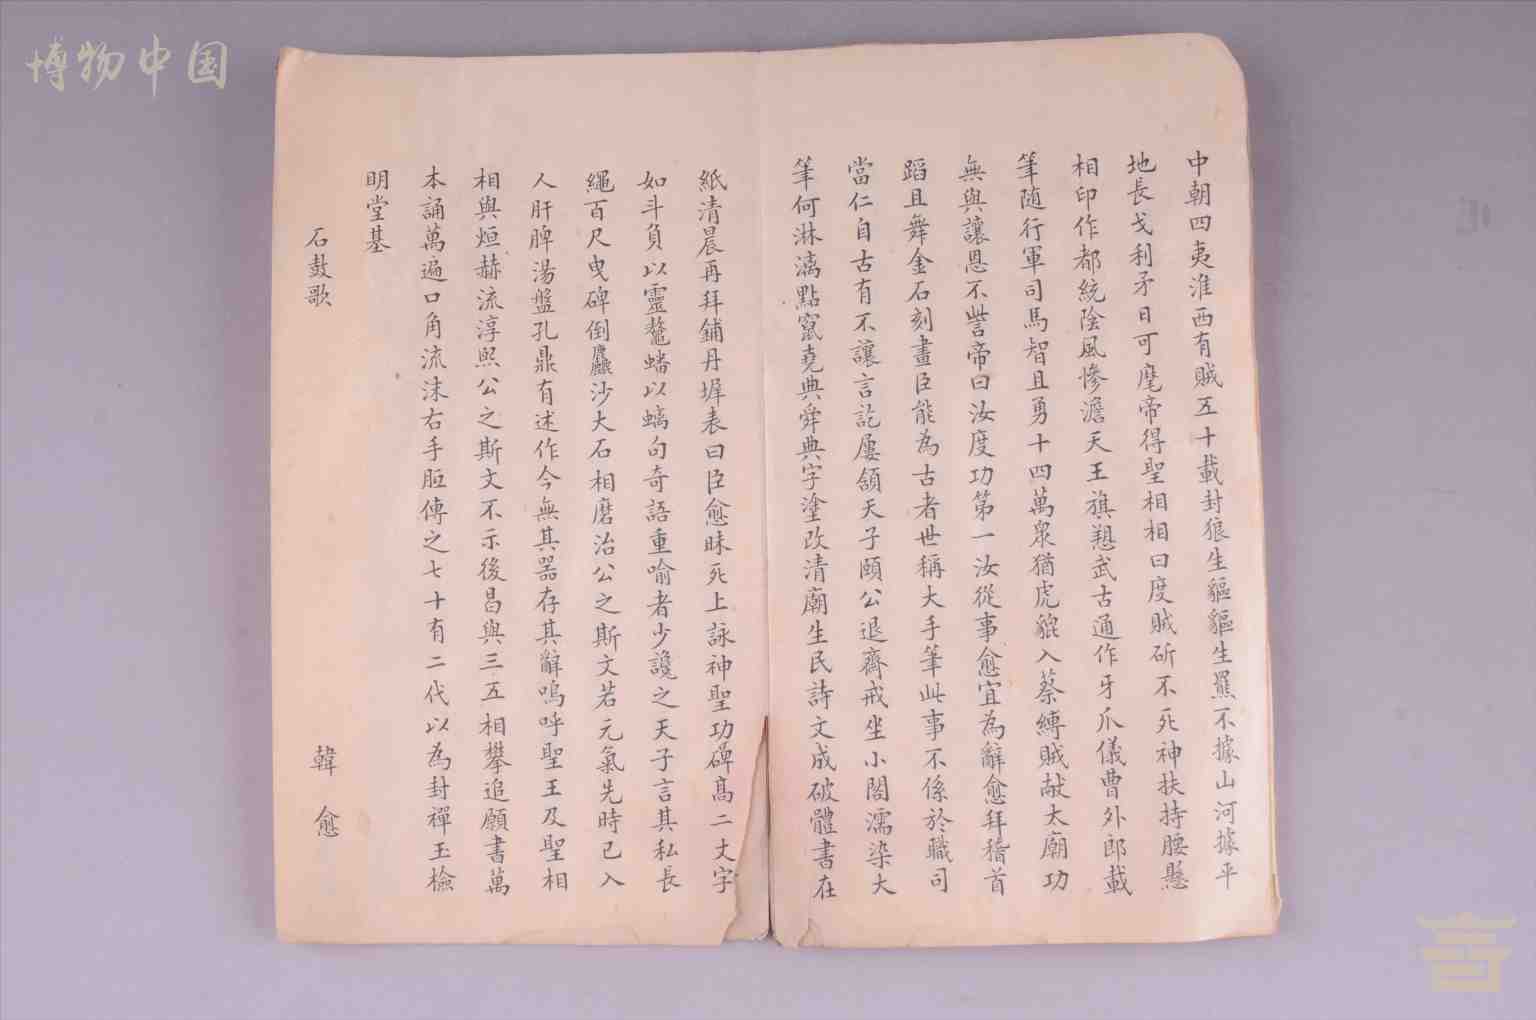 博物中国
中朝四夷淮西有賊五十載封狼生貙貙生羆不據山河據平
地長戈利矛日可麾帝得聖相相曰度賊斫不死神扶持腰懸
相印作都統陰風慘澹天王旗愬武古通作牙爪儀曹外郎載
筆随行軍司馬智且勇十四萬眾猶虎貔入蔡縛賊献太廟功
無與讓恩不訾帝曰汝度功第一汝從事愈宜為辭愈拜稽首
蹈且舞金石刻畫臣能為古者世稱大手筆此事不係於職司
當仁自古有不讓言訖屢頷天子頤公退齋戒坐小閤濡染大
筆何淋漓點竄堯典舜典字塗改清廟生民詩文成破體書在
紙清晨再拜鋪丹墀表曰臣愈昧死上詠神聖功碑高二丈字
如斗負以靈鼇蟠以螭句奇語重喻者少讒之天子言其私長
繩百尺曳碑倒麤沙大石相磨治公之斯文若元氣先時已入
人肝脾湯盤孔鼎有述作今無其器存其辭嗚呼聖王及聖相
相與烜赫流淳熙公之斯文不示後曷與三五相攀追願書萬
本誦萬遍口角流沫右手胝傳之七十有二代以為封禪玉檢
明堂基
石鼓歌 韓愈